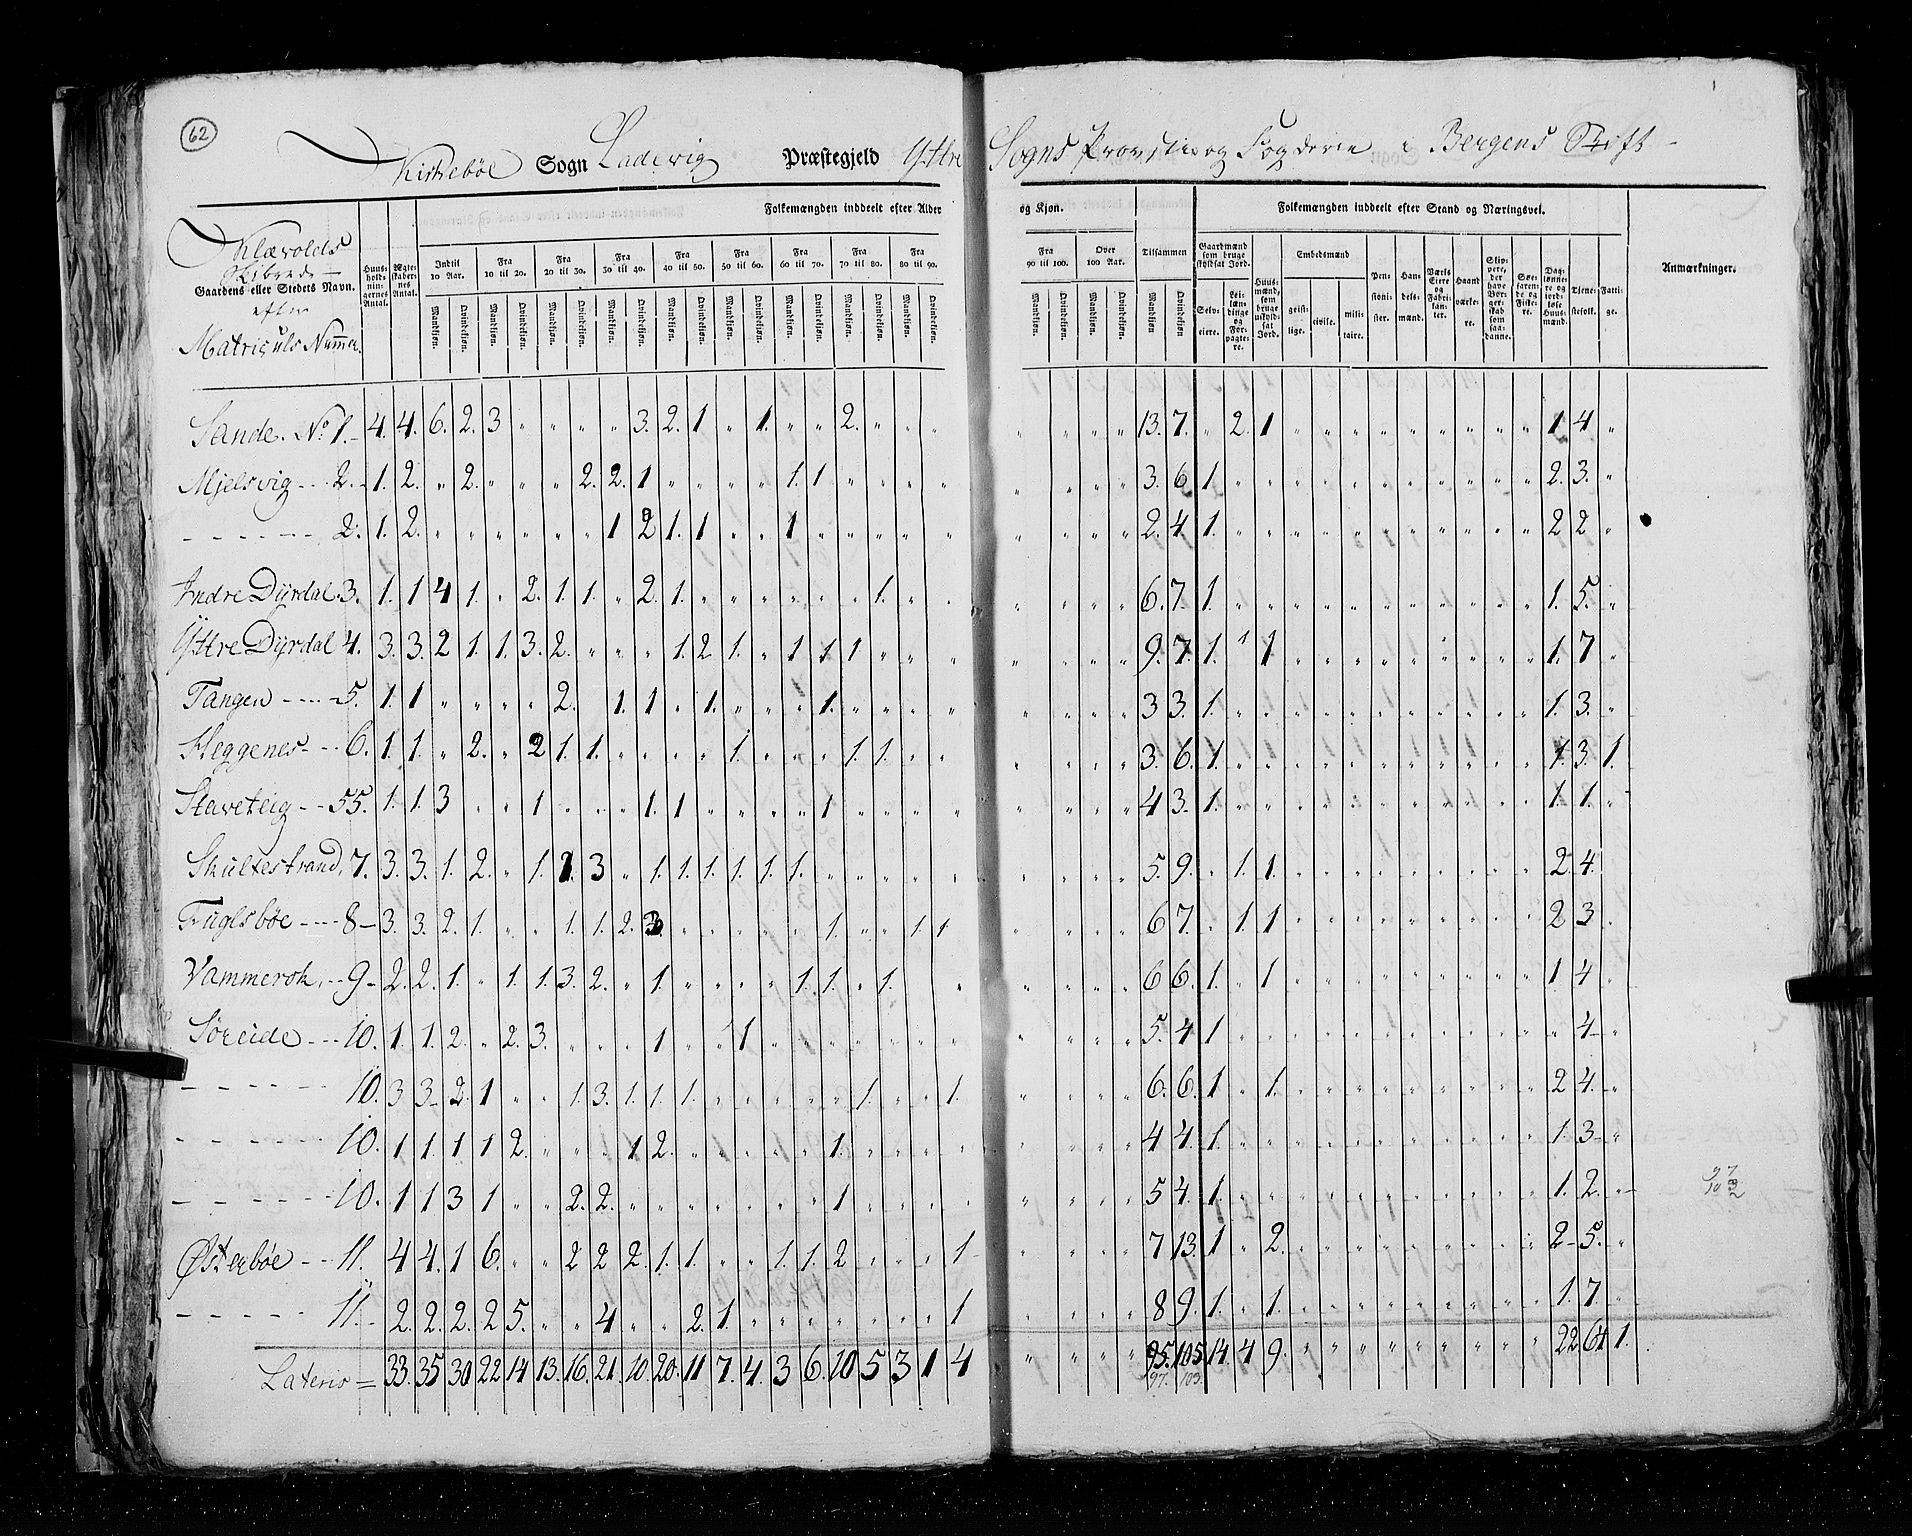 62
Kirkebøe Sogn Ladevig Præstegjeld Yttre Sogns Provstie og Fogderie i Bergens Stift
Folkemængden inddeelt efter Alder og Kjøn. Folkemængden inddeelt efter Stand og Næringsvei.
Klævolds Skibrede
Gaardens eller Stedets Navn.
efter
Matriculs Nummer.
Huusholdningernes Antal. Ægteskabernes Antal. Indtil 10 Aar. Fra 10 til 20. Fra 20 til 30. Fra 30 til 40. Fra 40 til 50. Fra 50 til 60. Fra 60 til 70. Fra 70 til 80. Fra 80 til 90. Fra 90 til 100. Over 100 Aar. Tilsammen Gaardmænd som bruge skyldsat Jord. Huusmænd, som bruge uskyldsat Jord. Embedsmænd Pensionister. Handelsmænd. Værks Eiere og Fabrikanter. Haandværkere. Skippere, der have Borgerskab som saadanne. Søefarende og Fiskere. Daglønnere og jordløse Huusmænd. Tjenestefolk. Fattige. Anmærkninger.
Mandkjøn. Qvindekjøn. Mandkjøn. Qvindekjøn. Mandkjøn. Qvindekjøn. Mandkjøn. Qvindekjøn. Mandkjøn. Qvindekjøn. Mandkjøn. Qvindekjøn. Mandkjøn. Qvindekjøn. Mandkjøn. Qvindekjøn. Mandkjøn. Qvindekjøn. Mandkjøn. Qvindekjøn. Mandkjøn. Qvindekjøn. Mandkjøn. Qvindekjøn. Selveiere. Leilændinge og Forpagtere. geistlige. civile. militaire.
Sande. No 1. 4. 4. 6. 2. 3 " " " " 3. 2. 1 " 1. " " 2. " " " " " " " 13. 7. " 2. 1 " " " " " " " " " 1 4 "
Mjelsvig 2. 1. 2. " 2. " " " 2. 2. 1 " " " " 1. 1 " " " " " " " " 3. 6 1 " " " " " " " " " " " 2. 3. "
2. 1. 2. " " " " " " 1 2 1. 1 " " 1 " " " " " " " " " 2. 4 1. " " " " " " " " " " " 2 2 "
Indre Dÿrdal 3. 1. 1 4 1. " 2. 1. 1. " 2. 1. " " " " " " 1. " " " " " " 6. 7 1. " " " " " " " " " " " 1. 5. "
Yttre Dÿrdal 4. 3. 3. 2 1. 1. 3. 2. " " " 1. 2 1. " 1 1. 1 " " " " " " " 9. 7. 1. 1 1 " " " " " " " " " 1. 7 "
Tangen 5. 1. 1 " " " " 2. " 1. 1 " 1. " " " 1. " " " " " " " " 3 3. 1. " " " " " " " " " " " 1. 3. "
Heggenes 6. 1 1. " 2. " 2 1. 1. " " " " 1. " " " 1. 1. " " " " " " 3. 6. 1. " " " " " " " " " " " 1. 3. 1.
Staveteig 55. 1. 1. 3 " " 1 " " " 1. 1 " " " " 1 " " " " " " " " 4 3. 1. " " " " " " " " " " " 1. 1. "
Skultestrand, 7. 3. 3. 1. 2. " 1. 1. 3 " 1. 1. 1. 1. 1. 1. " " " " " " " " " 5. 9. " 1. 1. " " " " " " " " " 2. 4.
Fuglsbøe 8 3. 3. 2. 1. " " 1. 1. 2. 3. " " " " " 1. " " 1. 1 " " " " 6 7. " 1. 1 " " " " " " " " " 2 3 "
Vammersok, 9 2. 2. 1. " 1. 1. 3. 2. " 1. " " " " 1. 1. " 1. " " " " " " 6 6. 1. " 1 " " " " " " " " " 1 4 "
Søreide 10. 1. 1. 2. " 2. 3. " " " 1 " " 1 " " " " " " " " " " " 5. 4 1 " " " " " " " " " " " " 4 "
10. 3 3 2. 1 " " 1. 3. 1. 1. 1. " " " " " 1. " " 1. " " " " 6. 6. 1 " 1. " " " " " " " " " 2 4. "
10. 1 1. 1 1 2. " " " 1 2. " " " " " 1. " " " " " " " " 4 4. 1. " " " " " " " " " " " 1. 3 "
10. 1 1 3 1 " " 2. 2. " " " " " " " 1 " " " " " " " " 5 4. 1. " " " " " " " " " " " 1. 2. "
Østerbøe 11. 4 4. 1 6. " " 2 2 2. 1. 1. " " 1. 1. 2 " " " 1 " " " " 7 13. 1 " 2. " " " " " " " " " 2 5. "
11. 2. 2. 2. 2 5. " " 4 " " 2. 1. " " " " " " " 1 " " " " 8 9. 1. " 1. " " " " " " " " " 1. 7. "
Lateris = 33. 35 30 22 14 13. 16. 21. 10. 20. 11 7. 4. 3 6. 10 5 3 1 4 " " " " 95. 105. 14 4 9. " " " " " " " " " 22. 64 1.
97. 103.